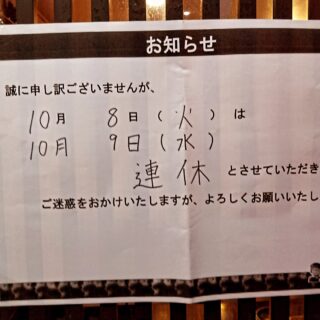 お知らせ
誠に申し訳ございませんが、
10月 8日(火)は
10月 9日(水)
連休とさせていただき
ご迷惑をおかけいたしますが、よろしくお願いいたし